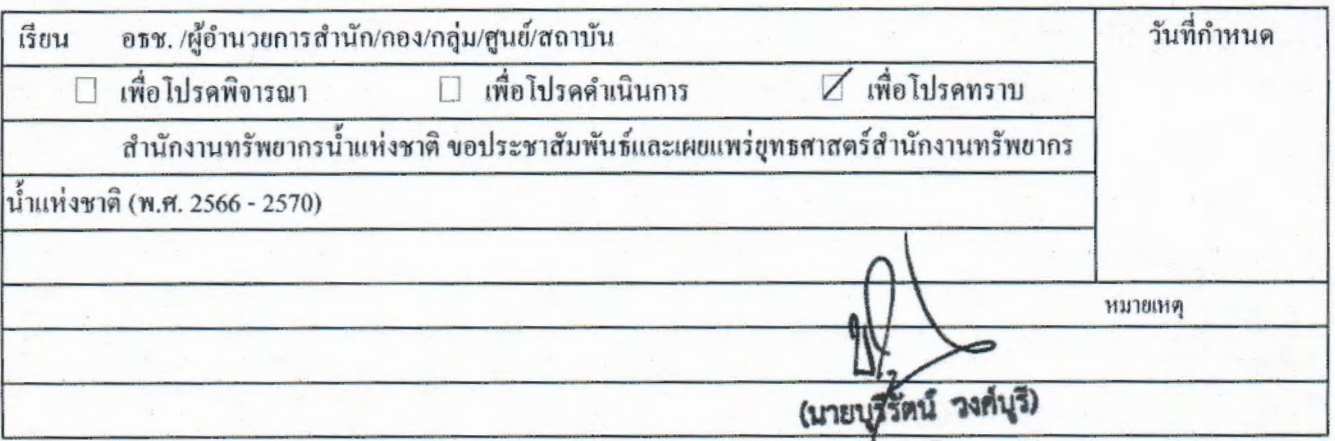 เรียน อธช. /ผู้อำนวยการสำนัก/กอง/กลุ่ม/ศูนย์/สถาบัน วันที่กำหนด
☐ เพื่อโปรดพิจารณา ☐ เพื่อโปรดดำเนินการ ☑ เพื่อโปรดทราบ
สำนักงานทรัพยากรน้ำแห่งชาติ ขอประชาสัมพันธ์และเผยแพร่ยุทธศาสตร์สำนักงานทรัพยากร
น้ำแห่งชาติ (พ.ศ. 2566 - 2570)
หมายเหตุ
(นายบุรีรัตน์ วงศ์บุรี)